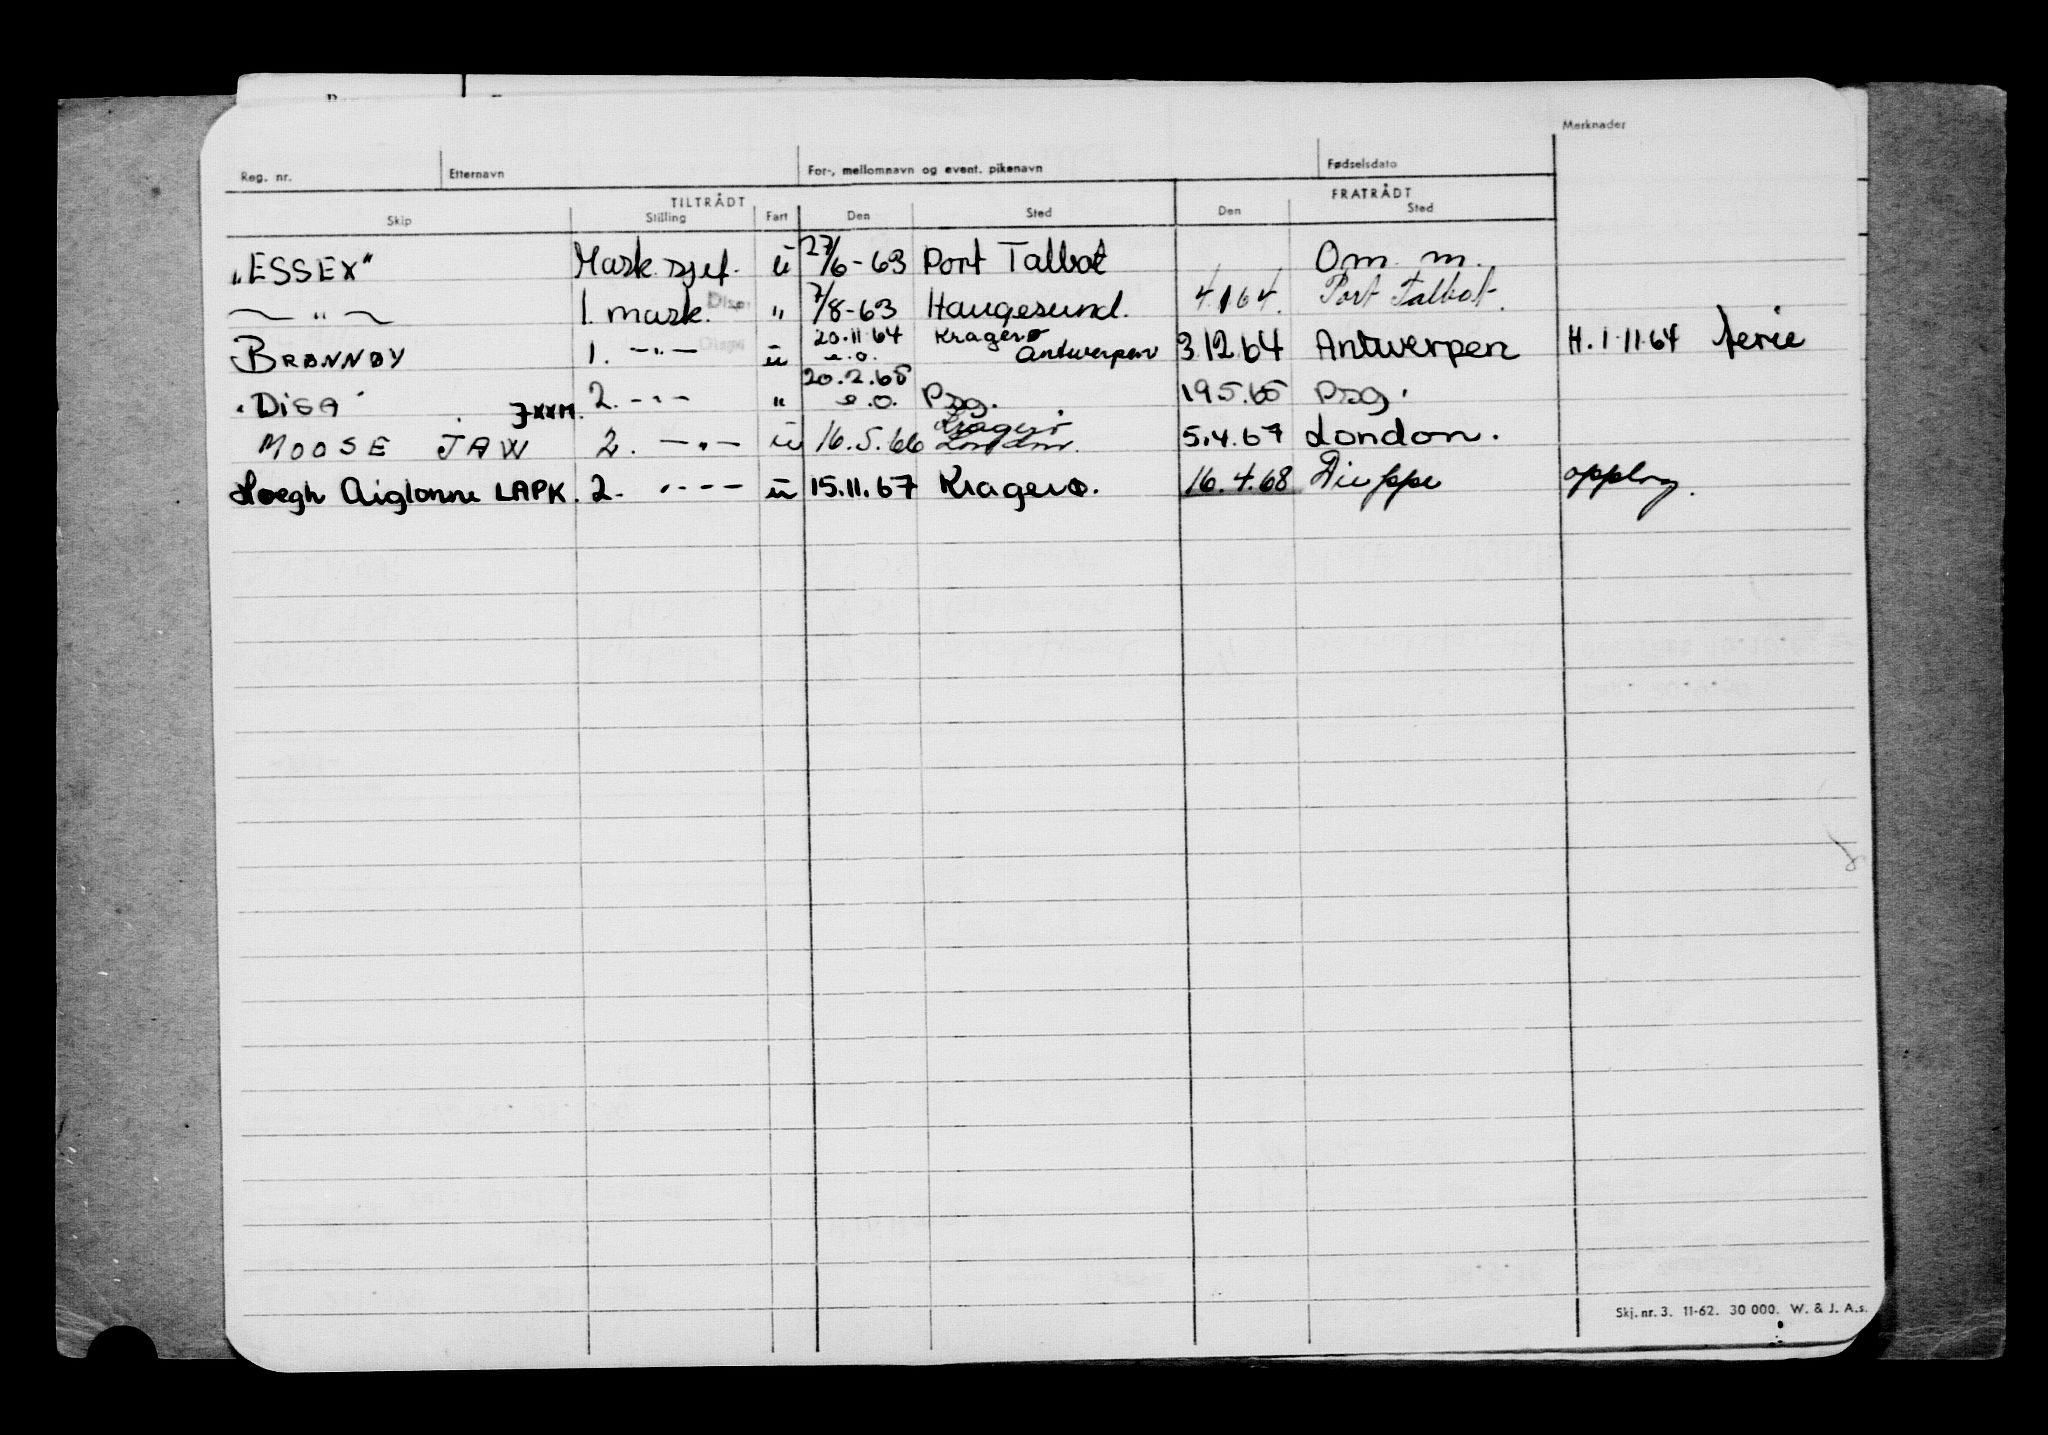 Merknader
Reg. nr. Etternavn For-, mellomnavn og event. pikenavn Fødselsdato
TILTRÅDT FRATRÅDT
Skip Stilling Fart Den Sted Den Sted
"ESSEX" Mask.sjef. ü 27/6-63 Port Talbot Om. m.
— " — 1. mask. Disp. " 7/8-63 Haugesund. 4.1.64. Port Talbot.
BRØNNØY 1. —"— Disp. ü 20.11.64 e.o. Kragerø Antwerpen 3.12.64 Antwerpen H. 1.11.64 ferie
"Disa" 2. —"— " 20.2.65 e.o. Psg. 19.5.65 Psg.
MOOSE JAW JXXM 2. —"— ü 16.5.66 Kragerø London. 5.4.67 London.
Hoegh Aiglonne LAPK. 2. —"— ü 15.11.67 Kragerø. 16.4.68 Dieppe opplag.
Skj. nr. 3. 11-62. 30 000. W. & J. A.s.